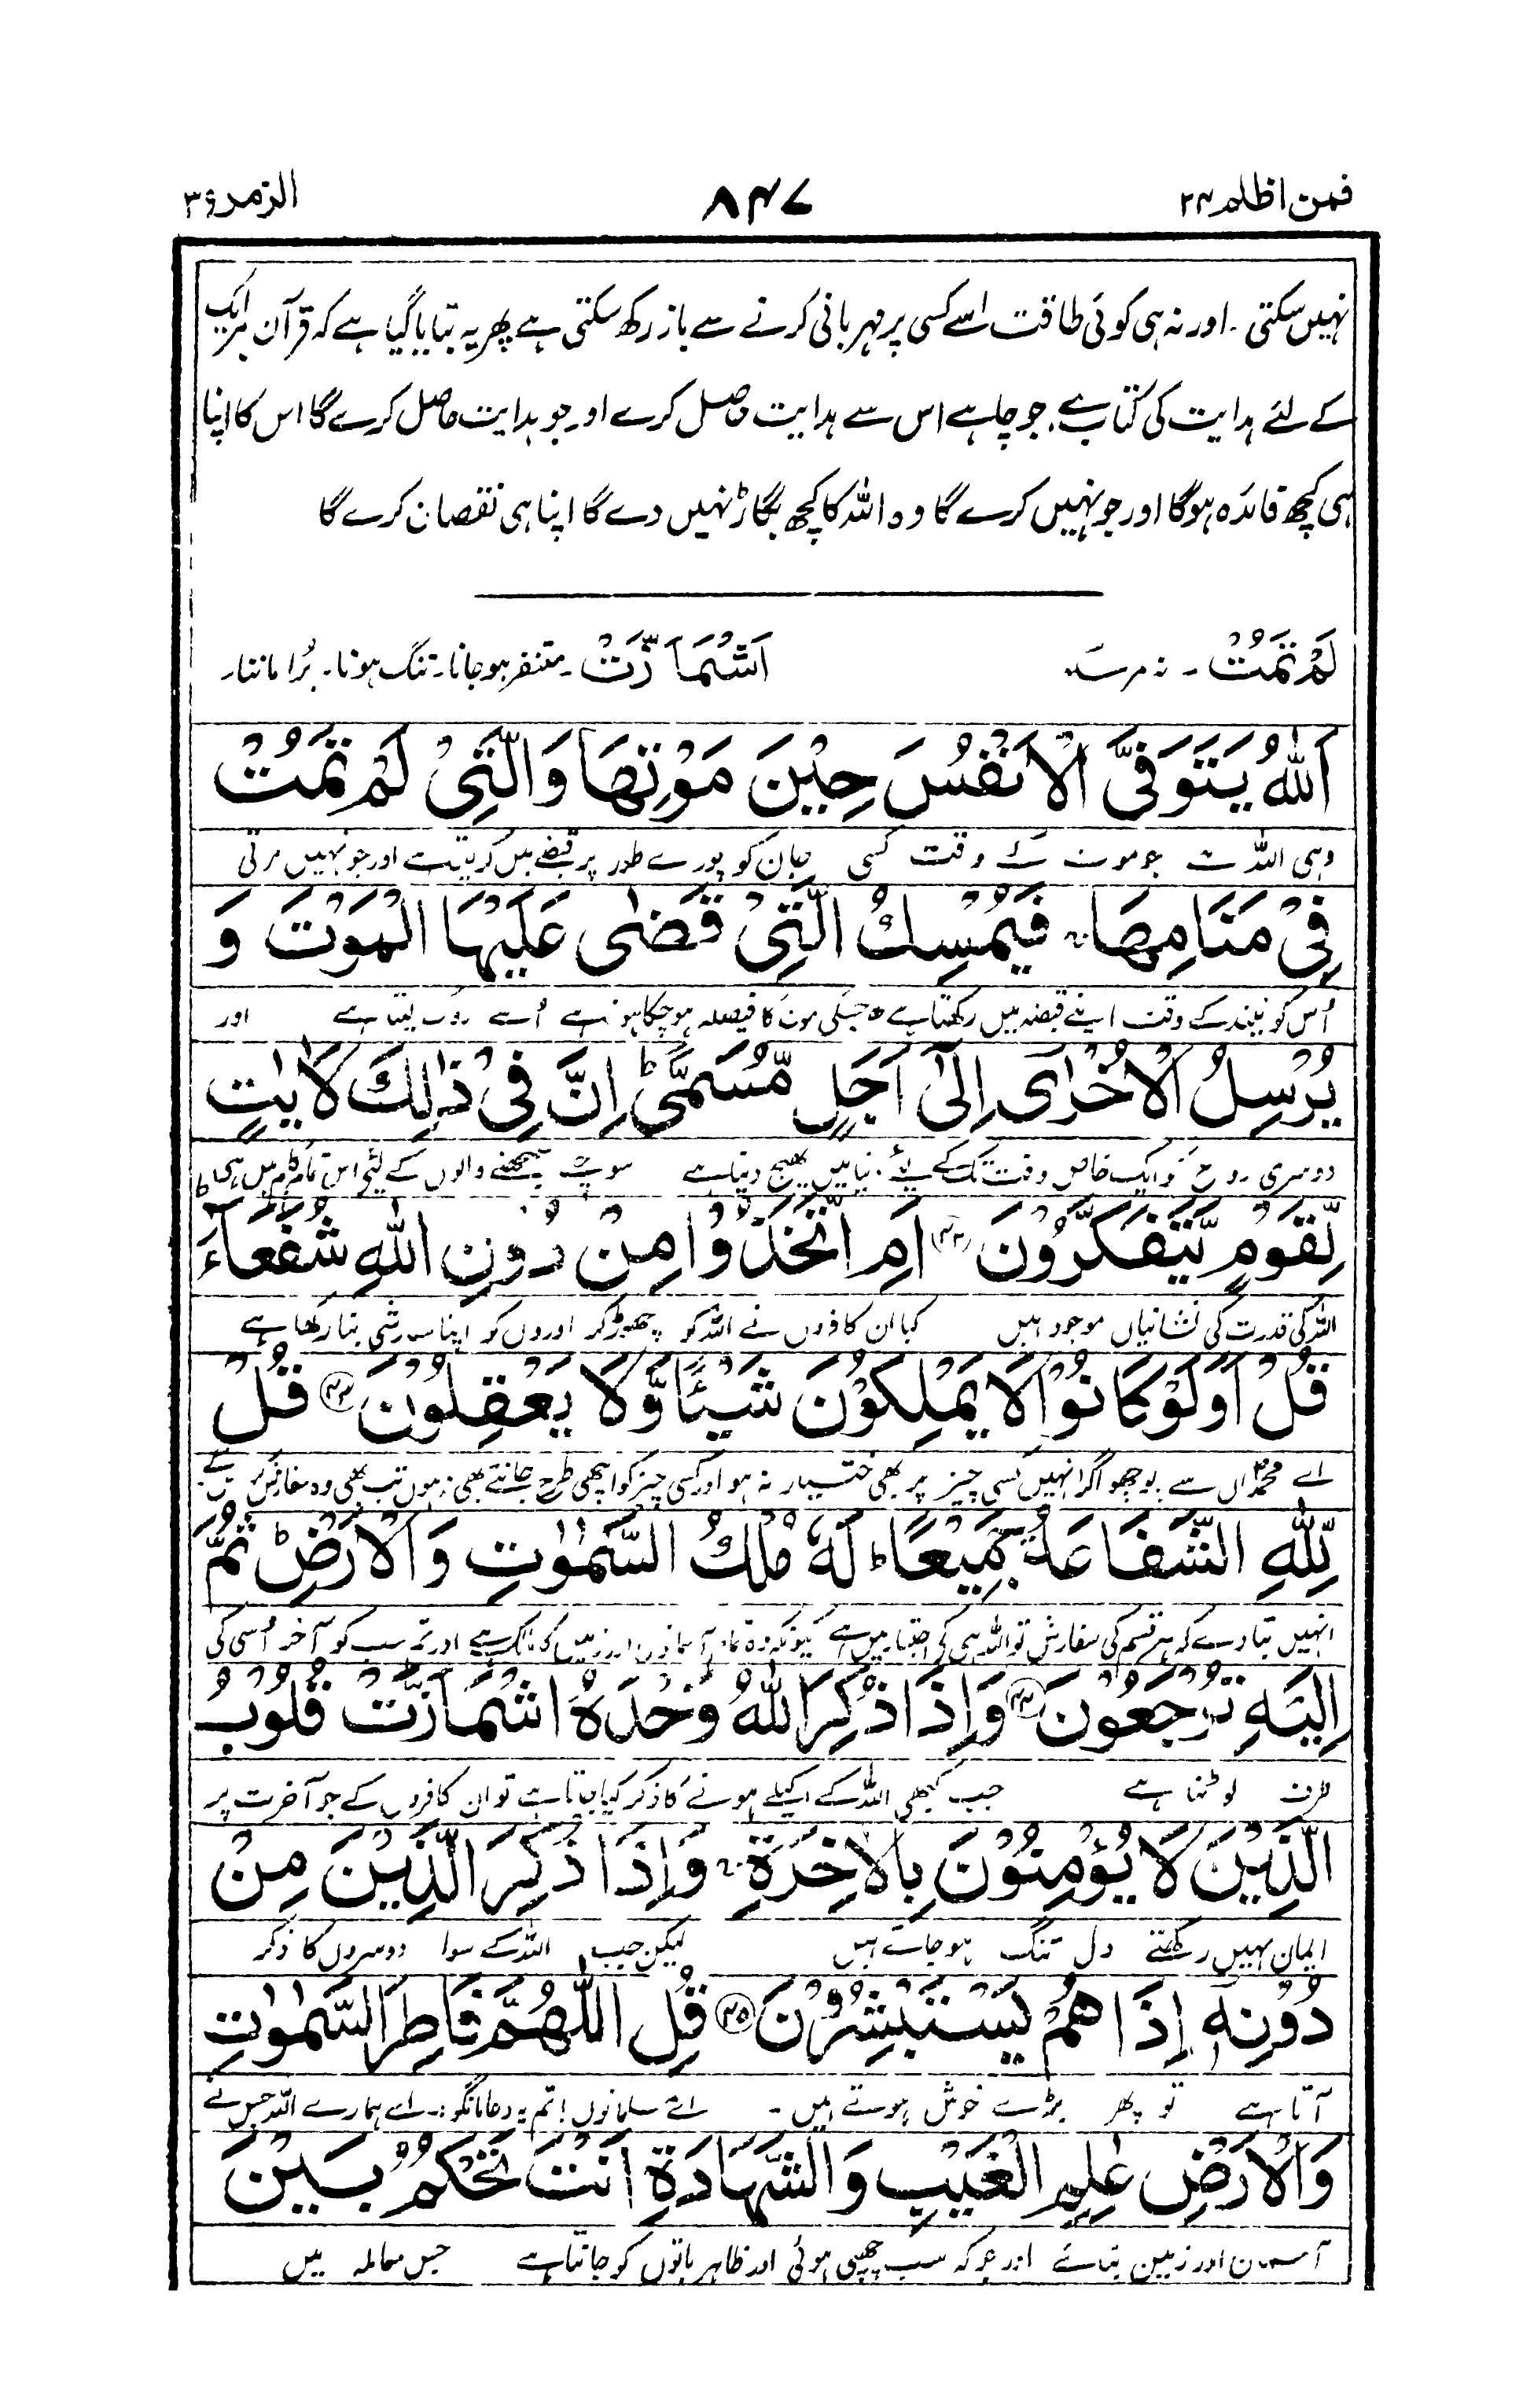 فمن اظلم ۲۴
۸۴۷
الزمر ۳۹
نہیں سکتی۔ اور نہ ہی کوئی طاقت اسے کسی پر مہربانی کرنے سے باز رکھ سکتی ہے پھر یہ بتایا گیا ہے کہ قرآن ہر ایک
کے لئے ہدایت کی کتاب ہے۔ جو چاہے اس سے ہدایت حاصل کرے اور جو ہدایت حاصل کرے گا اس کا اپنا
ہی کچھ فائدہ ہوگا اور جو نہیں کرے گا وہ اللہ کا کچھ بگاڑ نہیں دے گا اپنا ہی نقصان کرے گا
لَمْ تَمُتْ ۔ نہ مرے
اشْمَأَزَّتْ ۔ متنفر ہو جانا۔ تنگ ہونا۔ بُرا ماننا۔
اَللّٰهُ يَتَوَفَّى الْاَنْفُسَ حِيْنَ مَوْتِهَا وَالَّتِيْ لَمْ تَمُتْ
وہی اللہ ہے جو موت کے وقت کسی جان کو پورے طور پر قبضے میں کر لیتا ہے اور جو نہیں مرتی
فِيْ مَنَامِهَا ۚ فَيُمْسِكُ الَّتِيْ قَضٰى عَلَيْهَا الْمَوْتَ وَ
اُس کو نیند کے وقت اپنے قبضہ میں رکھتا ہے جسکی موت کا فیصلہ ہو چکا ہوتا ہے اُسے روک لیتا ہے اور
يُرْسِلُ الْاُخْرٰى اِلٰٓى اَجَلٍ مُّسَمًّى ؕ اِنَّ فِيْ ذٰلِكَ لَاٰيٰتٍ
دوسری روح کو ایک خاص وقت تک کے لئے دنیا میں بھیج دیتا ہے سوچنے سمجھنے والوں کے لئے اس تمام کام میں ہی
لِّقَوْمٍ يَّتَفَكَّرُوْنَ ﴿۴۲﴾ اَمِ اتَّخَذُوْا مِنْ دُوْنِ اللّٰهِ شُفَعَآءَ
اللہ کی قدرت کی نشانیاں موجود ہیں کیا ان کافروں نے اللہ کو چھوڑ کر اوروں کو اپنا سفارشی بنا رکھا ہے
قُلْ اَوَلَوْ كَانُوْا لَا يَمْلِكُوْنَ شَيْـًٔا وَّلَا يَعْقِلُوْنَ ﴿۴۳﴾ قُلْ
اے محمد ان سے پوچھو اگر انہیں کسی چیز پر بھی اختیار نہ ہو اور کسی چیز کو اچھی طرح جانتے بھی نہ ہوں تب بھی وہ سفارش کریں گے
لِّلّٰهِ الشَّفَاعَةُ جَمِيْعًا ؕ لَهٗ مُلْكُ السَّمٰوٰتِ وَالْاَرْضِ ؕ ثُمَّ
انہیں بتا دے کہ ہر قسم کی سفارش تو اللہ ہی کی اختیار میں ہے کیونکہ وہ تمام آسمانوں اور زمین کا مالک ہے اور تم سب کو آخر اُسی کی
اِلَيْهِ تُرْجَعُوْنَ ﴿۴۴﴾ وَاِذَا ذُكِرَ اللّٰهُ وَحْدَهُ اشْمَاَزَّتْ قُلُوْبُ
طرف لوٹنا ہے جب کبھی اللہ کے اکیلے ہونے کا ذکر کیا جاتا ہے تو ان کافروں کے جو آخرت پر
الَّذِيْنَ لَا يُؤْمِنُوْنَ بِالْاٰخِرَةِ ۚ وَاِذَا ذُكِرَ الَّذِيْنَ مِنْ
ایمان نہیں رکھتے دل تنگ ہو جاتے ہیں لیکن جب اللہ کے سوا دوسروں کا ذکر
دُوْنِهٖٓ اِذَا هُمْ يَسْتَبْشِرُوْنَ ﴿۴۵﴾ قُلِ اللّٰهُمَّ فَاطِرَ السَّمٰوٰتِ
آتا ہے تو پھر بڑے خوش ہوتے ہیں۔ اے مسلمانوں! تم یہ دعا مانگو:۔ اے ہمارے اللہ جس نے
وَالْاَرْضِ عٰلِمَ الْغَيْبِ وَالشَّهَادَةِ اَنْتَ تَحْكُمُ بَيْنَ
آسمان اور زمین بنائے اور جو کہ سب چھپی ہوئی اور ظاہر باتوں کو جانتا ہے جس معاملہ میں